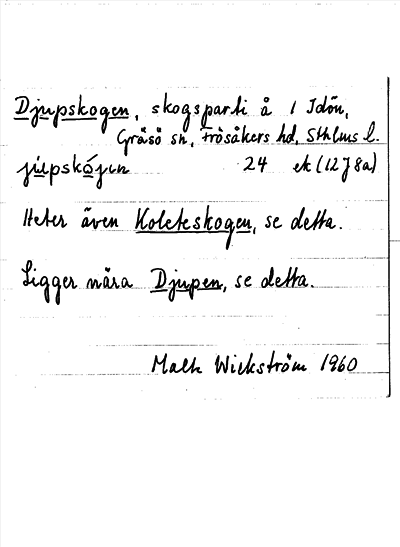 Djupskogen, skogsparti å 1 Idön,
Gräsö sn, Frösåkers hd, Sthlms l.
júpskó̱jen 24 ek (12J8a)
Heter även Koleteskogen, se detta.
Ligger nära Djupen, se detta.
Malte Wickström 1960